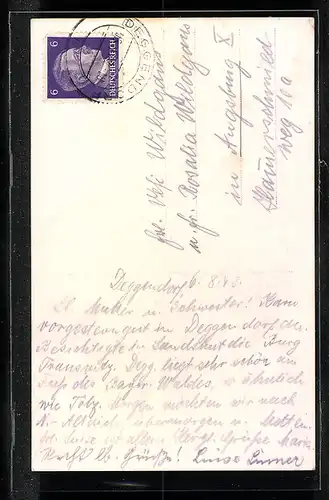 6 6
DEUTSCHES REICH
DEGGENDORF
Frl. Resi Wildgans
u. Fr. Rosalia Wildgans
in Augsburg X
Hammerschmied
weg 10a
Deggendorf 6.8.43.
Lb. Mutter u. Schwester! Kam
vorgestern gut in Deggendorf an.
Besichtigte in Landshut die Burg
Trausnitz. Degg. liegt sehr schön am
Fuß des Bayr. Waldes, u. ähnlich
wie Tölz. Morgen möchten wir nach
N. Altaich, übermorgen n. Metten
Herzl. Grüße Marie
Recht lb. Grüße! Luise